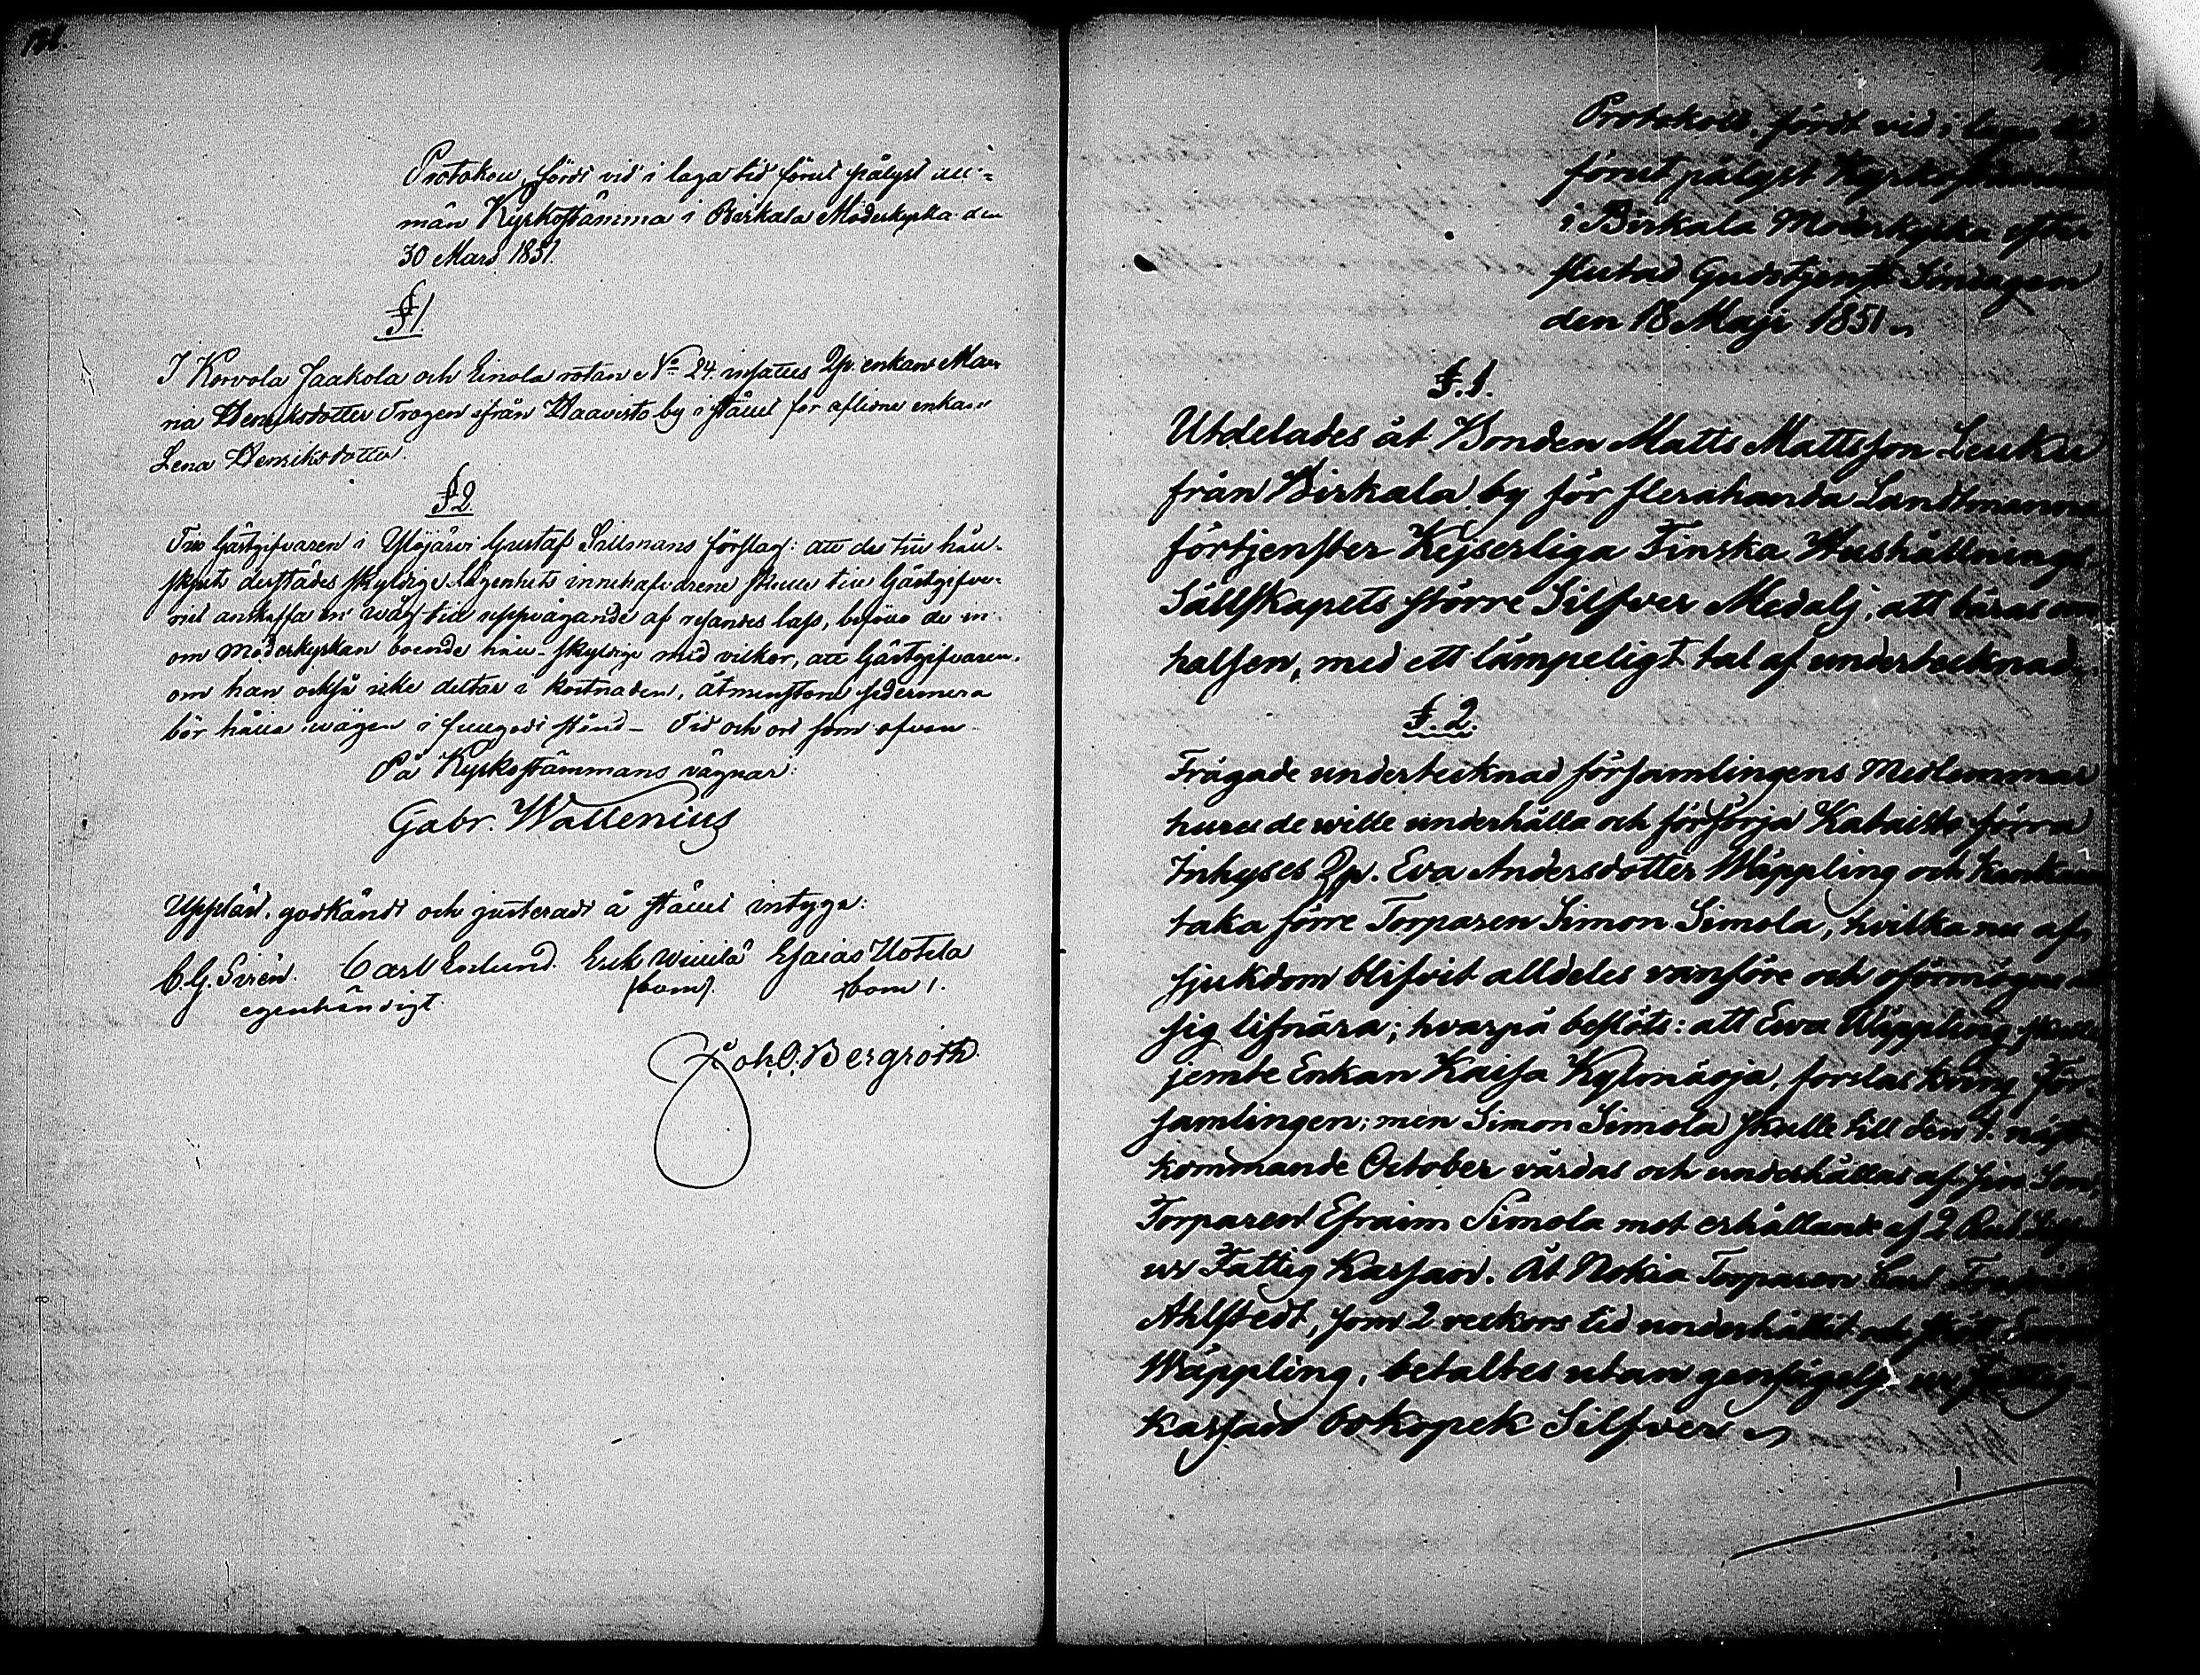 Protokoll, fördt vid i laga tid förut pålyst all-
män Kyrkostämma i Birkala Moderkyrka den
30 Mars 1851.
§1.
I Korvola Jaakola och Einola rotan No 24. insattes Qp. enkan Ma-
ria Henriksdotter Trogen ifrån Haavisto by i stället för aflidne enkan
Lena Henriksdotter.
§2
Till Gästgifvaren i Ylöjärvi Gustaf Sallmans förslag: att de till håll-
skjuts derstädes skyldige Lägenhets innehafvarene skulle till Gästgifve-
riet anskaffa en våg till uppvägande af resandes lass, biföllo de in-
om Moderkyrkan boende håll-skyldige med vilkor, att Gästgifvaren,
om han också icke deltar i kostnaden, åtminstone sedermera
bör hålla vågen i fullgodt stånd – Tid och ort som ofvan.
På Kyrkostämmans vägnar:
Gabr. Wallenius
Uppläst, godkändt och justeradt å stället intyga:
C. G. Sirén. Carl Enlund. Erik Esaias Uotila
egenhändigt. bom. bom.
Joh. O. Bergroth.
Protokoll, fördt vid i laga tid
förut pålyst Kyrkostämma
i Birkala Moderkyrka efter
slutad Gudstjenst Söndagen
den 18 Maji 1851.
§.1.
Utdelades åt Bonden Matts Mattsson Leuku
från Birkala by för flerahanda Landtmanna
förtjenster Kejserliga Finska Hushållnings
Sällskapets större Silfver Medalj, att bäras om
halsen, med ett lämpeligt tal af undertecknad.
§.2.
Frågade undertecknad församlingens Medlemmar
huru de wille underhålla och försörja Kataisto förra
Inhyses Qp. Eva Andersdotter Wäppling och
taka förre Torparen Simon Simola, hvilka nu af
sjukdom blifvit alldeles vanföre och oförmögne att
sig lifnära; hvarpå beslöts: att Eva Wäppling skulle
jemte Enkan Kaisa Kylmäoja, forslas kring För-
samlingen; men Simon Simola skulle till den 1. näst-
kommande October vårdas och underhållas af sin Son,
Torparen Efraim Simola mot erhållande af 2 Rub. Silfver
ur Fattig Kassan. Åt Nokia Torparen Carl Fredrik
Ahlstedt, som 2 veckors tid underhållit och skött Eva
Wäppling, betaltes utan gensägelse ur Fattig-
kassan kopek Silfver.